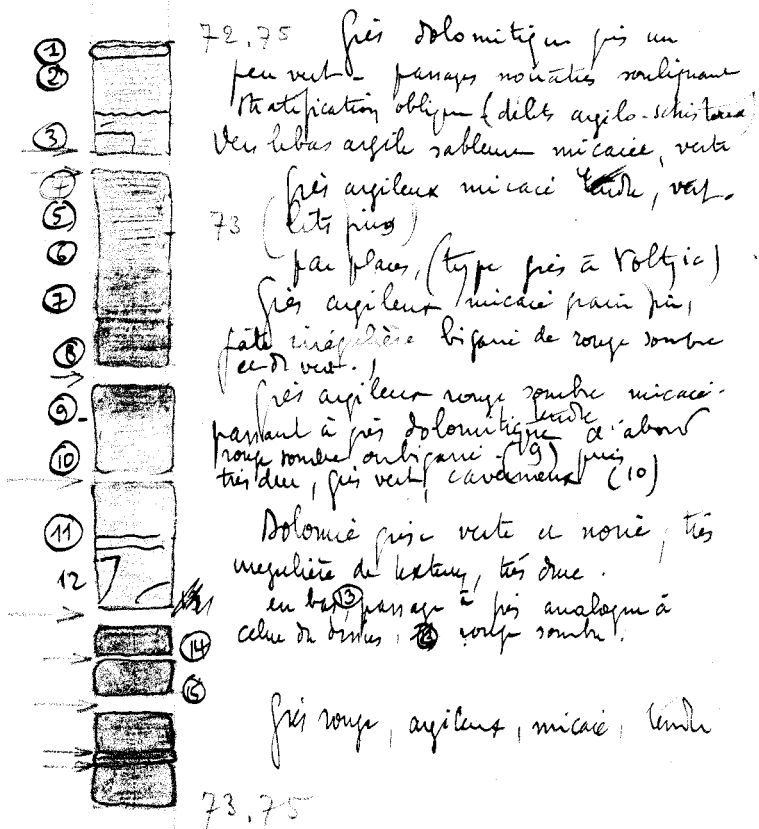 72,75 Grès dolomitique gris un
① peu vert - passages noirâtres soulignant
② stratification oblique (délits argilo-schisteux)
③ Vers le bas argile sableuse micacée, verte
④ Grès argileux micacé tendre, vert.
⑤ 73 (lits plus)
⑥ par places, (type grès à Voltzia)
⑦ Grès argileux micacé grain fin,
pâte irrégulière bigarré de rouge sombre
⑧ et de vert.
Grès argileux rouge sombre micacé.
⑨ passant à grès dolomitique tendre d'abord
rouge sombre ou bigarré (9) puis
⑩ très dur, gris vert, caverneux (10)
⑪ Dolomie grise verte et noire, très
irrégulière de texture, très dure.
12 en bas ⑬ passage à grès analogue à
⑭ celui du dessus, rouge sombre.
⑮
Grès rouge, argileux, micacé, tendre
73,75